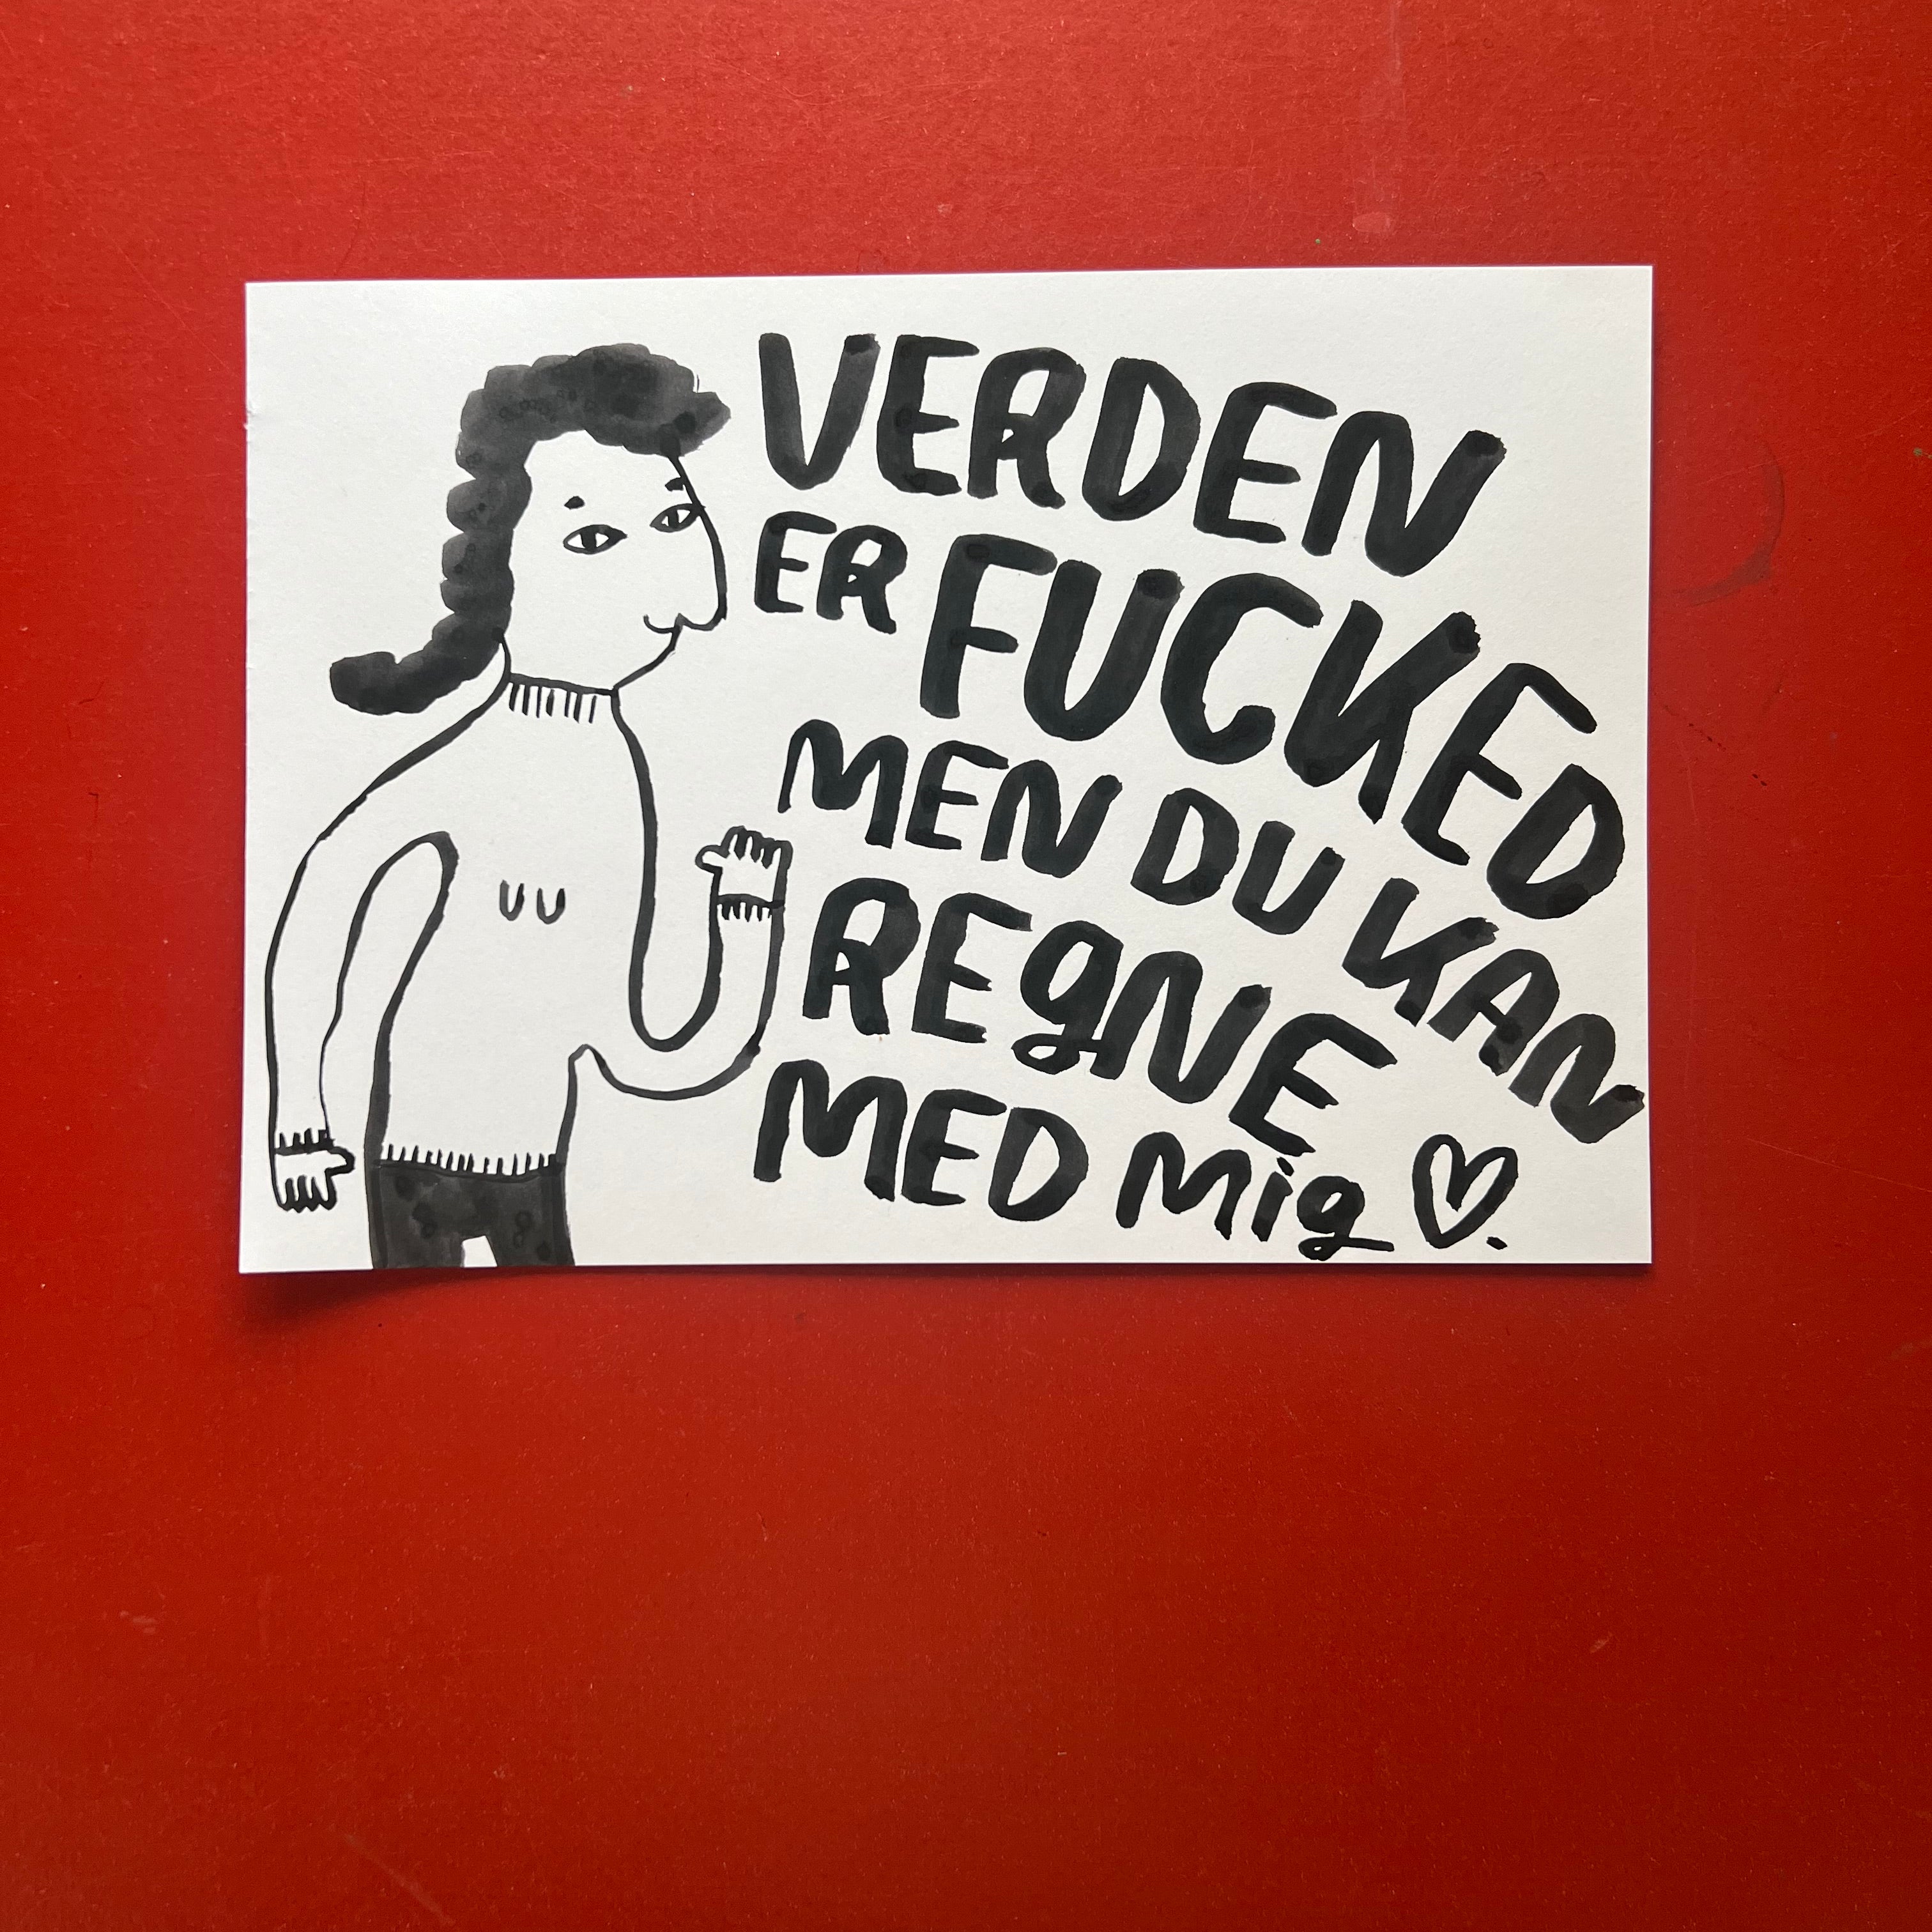 VERDEN
ER FUCKED
MEN DU KAN
REgNE
MED Mig ♡.